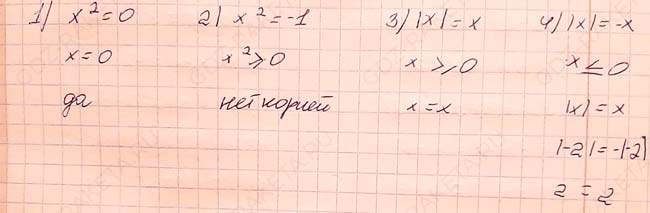 1) x² = 0
x = 0
да
2) x² = -1
x² ≥ 0
нет корней
3) |x| = x
x ≥ 0
x = x
4) |x| = -x
x ≤ 0
|x| = x
|-2| = -|-2|
2 = 2